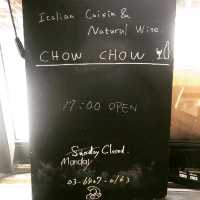 Italian Cuisin &
Natural Wine.
CHOW CHOW
17:00 OPEN
Sunday Closed.
Monday